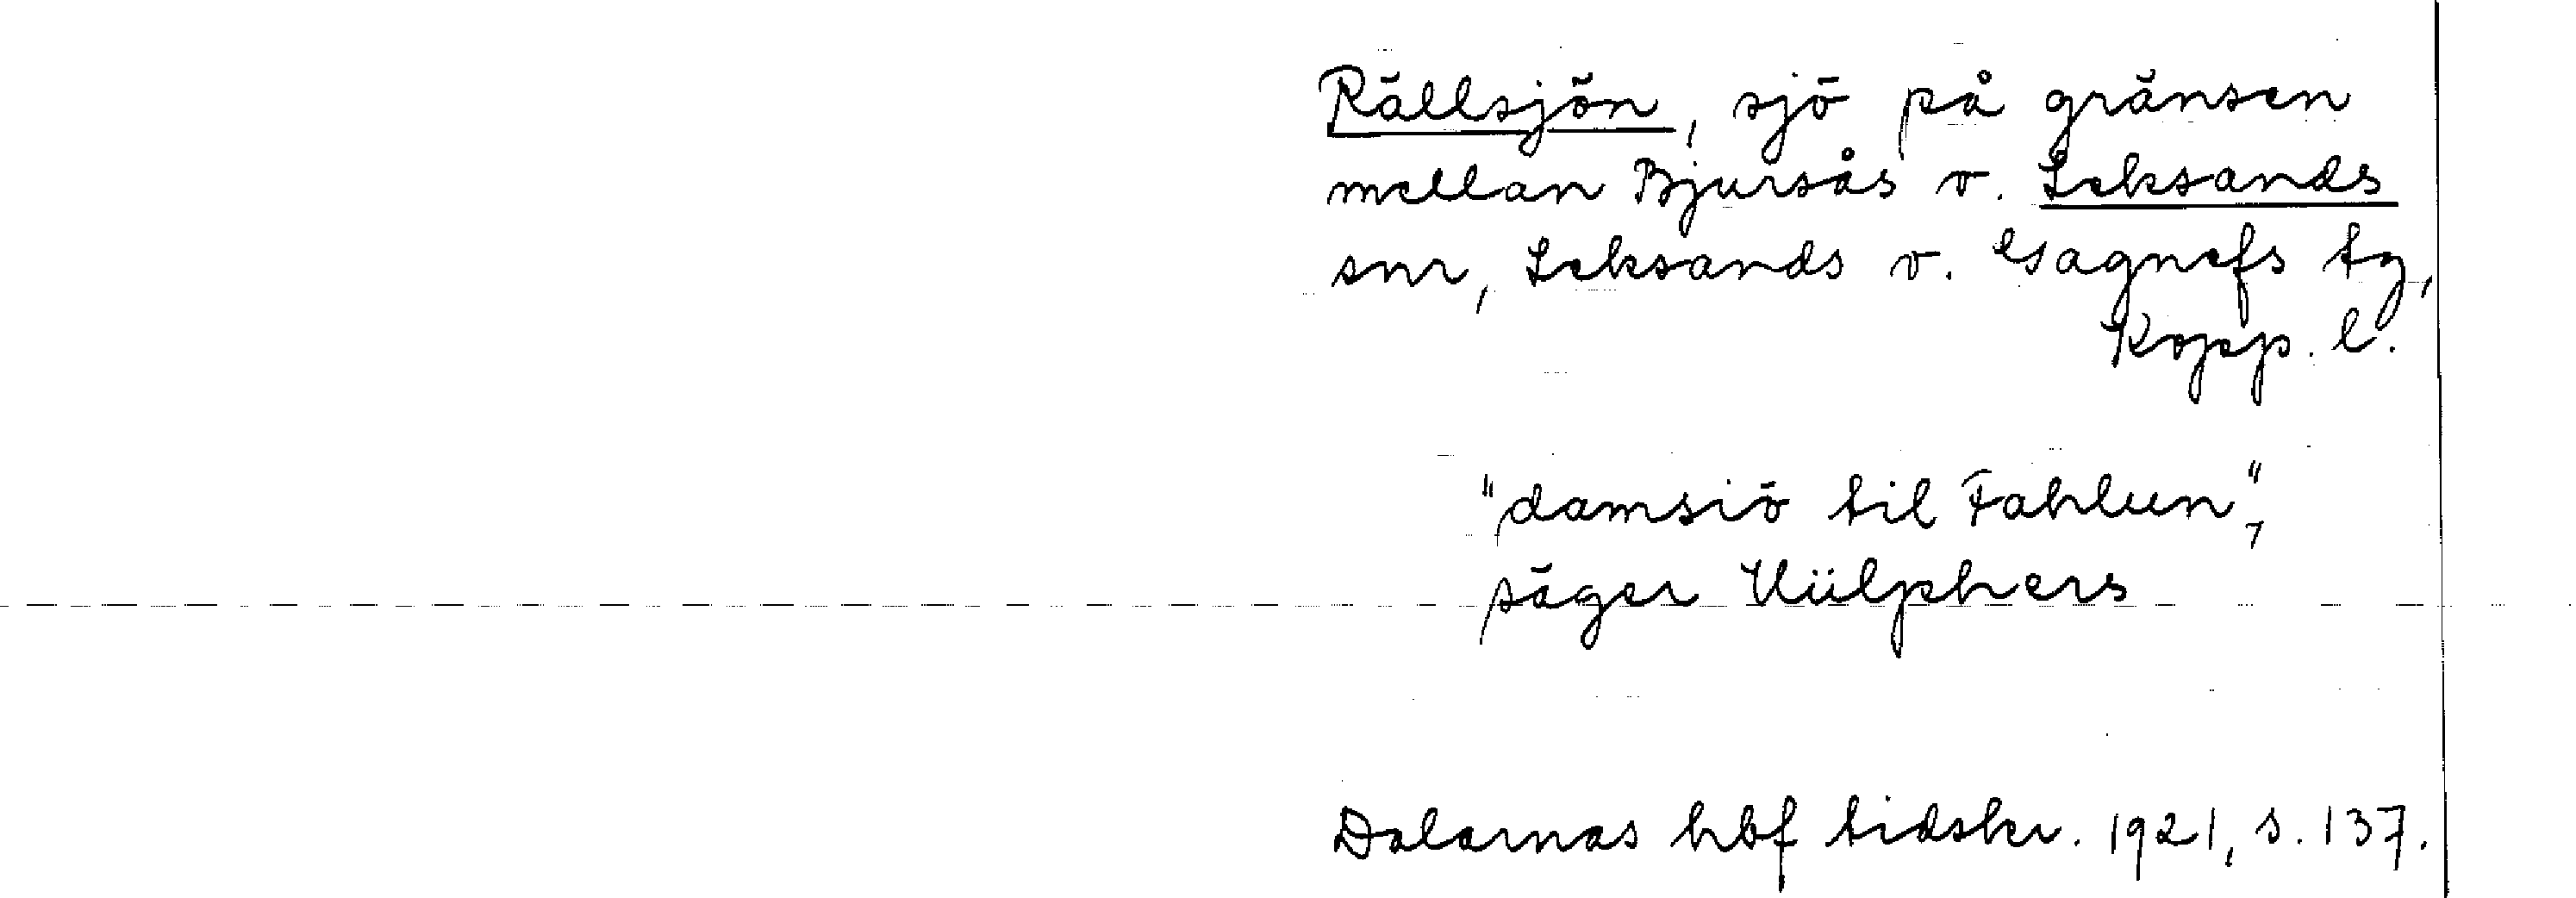 Rällsjön, sjö på gränsen
mellan Bjursås o. Leksands
snr, Leksands o. Gagnefs tg,
Kopp. l.
"damsiö til Fahlun",
säger Hülphers
Dalarnas hbf tidskr. 1921, s. 137.